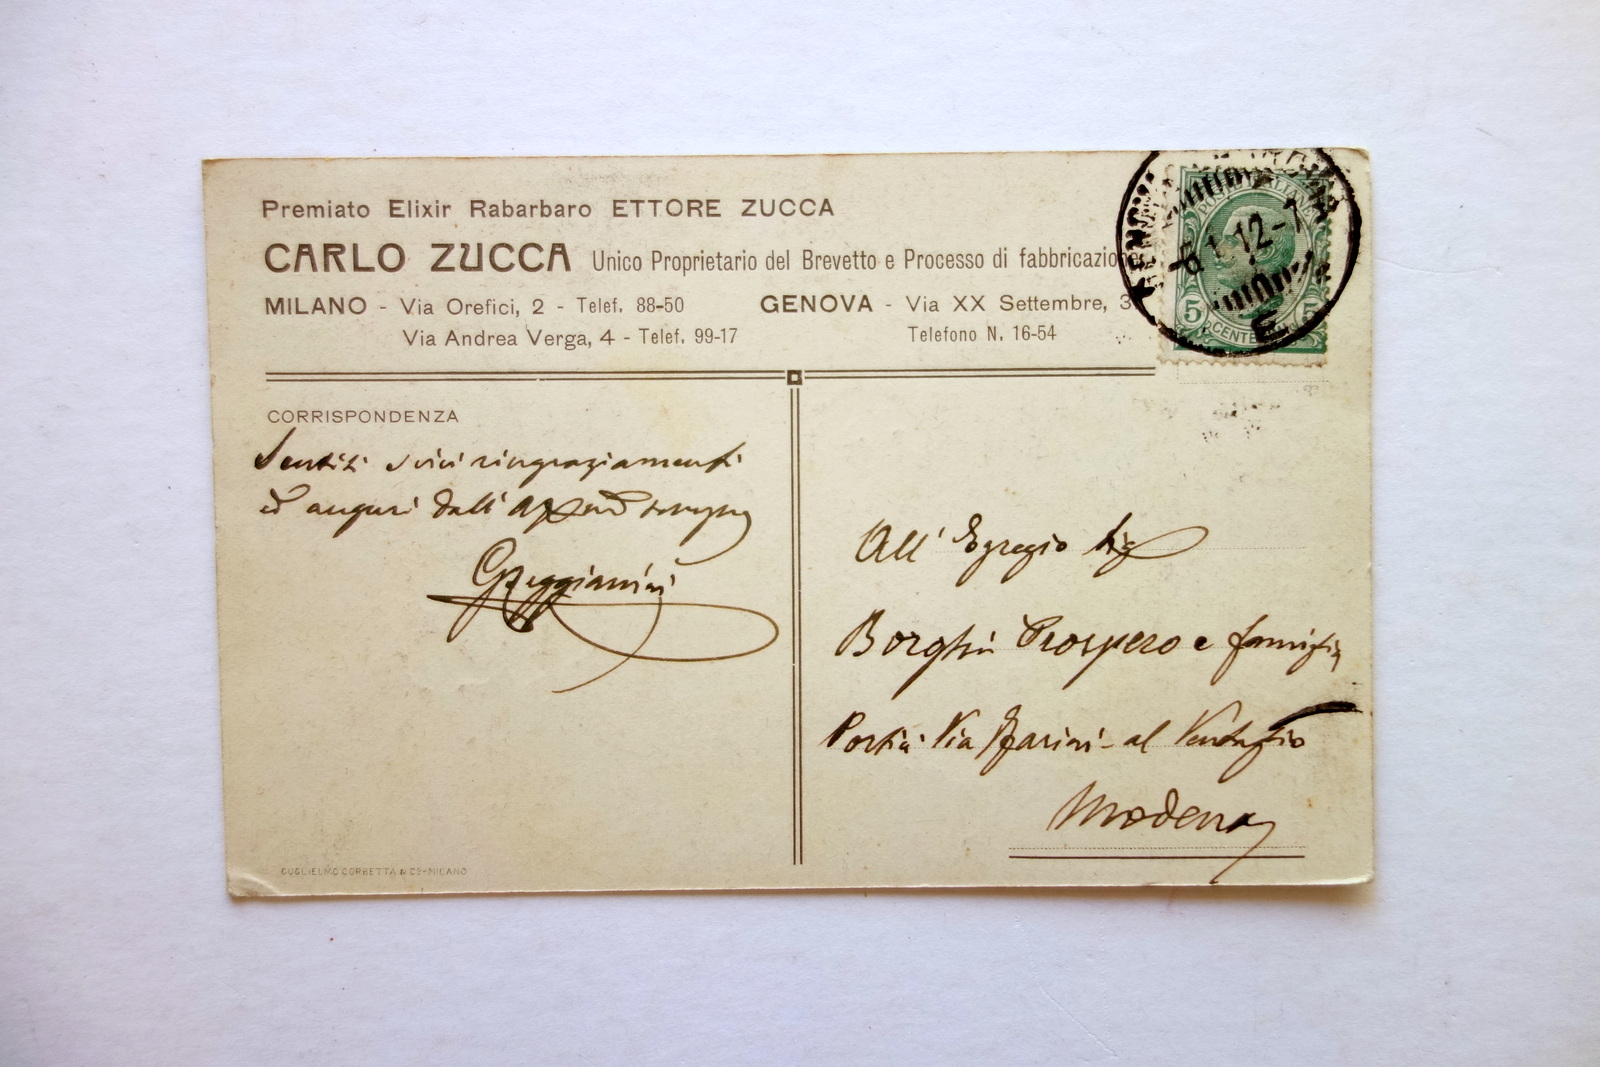 Premiato Elixir Rabarbaro ETTORE ZUCCA
CARLO ZUCCA Unico Proprietario del Brevetto e Processo di fabbricazione
MILANO - Via Orefici, 2 - Telef. 88-50
Via Andrea Verga, 4 - Telef. 99-17
GENOVA - Via XX Settembre, 3
Telefono N. 16-54
12-7
5 5
CENTE
CORRISPONDENZA
Sentiti vivi ringraziamenti
ed auguri dall'
GReggianini
All' Egregio Sig
Borghi Prospero e famiglia
Via Farini - al Ventaglio
Modena
GUGLIELMO CORBETTA & Cº-MILANO